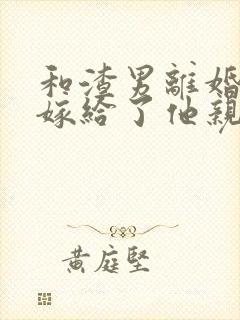 和渣男離婚
嫁給了他親
黃庭堅